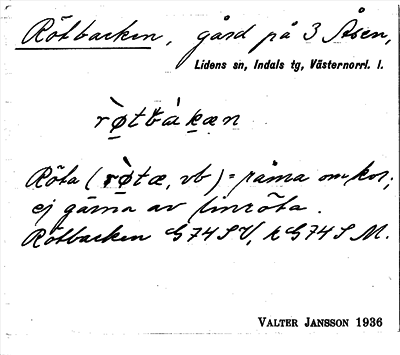 Rötbacken, gård på 3 Åsen,
Lidens sn, Indals tg, Västernorrl. l.
rø̀tbàkæn
Röta (rø̀tæ, vb) = råma om kor;
ej gärna av linröta.
Rötbacken G74SV, k G74S M.
VALTER JANSSON 1936